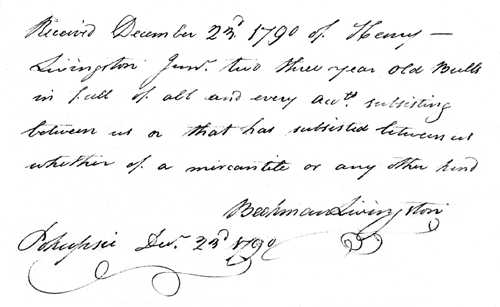 Received December 23d. 1790 of Henry —
Livingston Junr. two three year old Bulls
in full of all and every acctts. subsisting
between us or that has subsisted between us
whether of a mercantile or any other kind
Beekman Livingston
Pokepsie Decr. 23d 1790